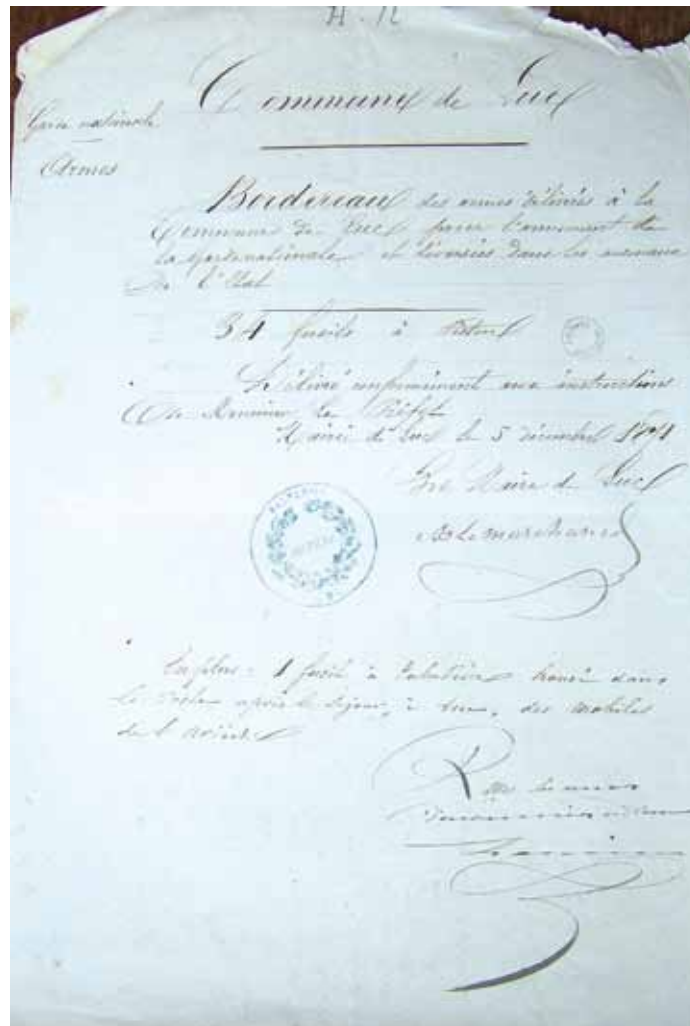 A. 12
Commune de Luc
Garde nationale
Armes
Bordereau des armes délivrés à la
Commune de Luc pour l'armement de
la garde nationale et versées dans les arsenaux
De l'Etat
34 fusils à
Délivré conformément aux instructions
De Monsieur le Préfet
Mairie de Luc le 5 décembre 1871
Le Maire de Luc
Lemarchand
En plus : 1 fusil à trouvé dans
après le séjour, à Luc, des mobiles
de l'
les armes